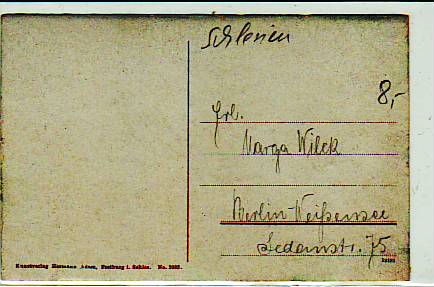 Schlesien
8,-
Frl.
Marga Wilck
Berlin-Weißensee
Sedanstr. 75
Kunstverlag Hermann Adam, Freiburg i. Schles. No.